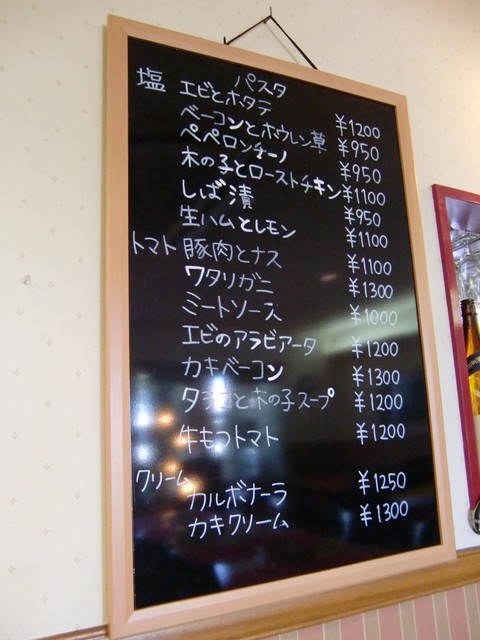 パスタ
塩 エビとホタテ ¥1200
ベーコンとホウレン草 ¥950
ペペロンチーノ ¥950
木の子とローストチキン ¥1100
しば漬 ¥950
生ハムとレモン ¥1100
トマト 豚肉とナス ¥1100
ワタリガニ ¥1300
ミートソース ¥1000
エビのアラビアータ ¥1200
カキベーコン ¥1300
と木の子スープ ¥1200
牛もつトマト ¥1200
クリーム
カルボナーラ ¥1250
カキクリーム ¥1300